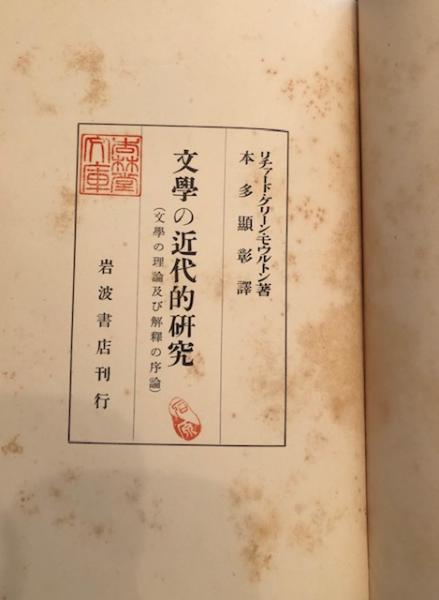 リチァード・グリーン・モウルトン著
本多顯彰譯
文學の近代的硏究
(文學の理論及び解釋の序論)
岩波書店刊行